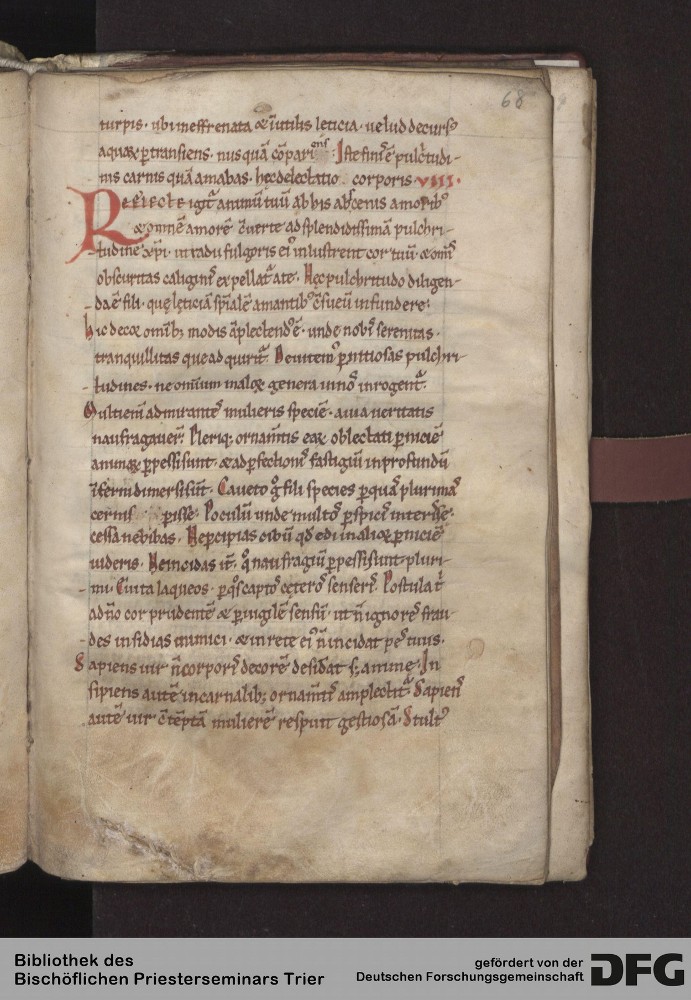 68
turpis · ubi ineffrenata & iutilis leticia · uelud decurs᷒
aquaꝝ ꝑtransiens · nusquā cōpariens · Iste finis ē pulcr̄tudi-
nis carnis quā amabas · hęc delectatio corporis VIII ·
REFLECTE igit᷑ animū tuū ab his abscenis amorib᷒
& omnē amorē c̄uerte ad splendidissimā pulchri-
tudinē xp̄i · ut radii fulgoris ei᷒ inlustrent cor tuū · & om̄is
obscuritas caliginis expellat᷑ a te · Hęc pulchritudo diligen-
da ē fili · quę lęticiā sp̄ialē amantib᷒ c̄sueū infundere ·
hic decor omib; modis āplectend᷒ ē · unde nobis serenitas ·
tranquillitas que adquirit᷑ · Deuitem᷒ ꝑnitiosas pulchri-
tudines · ne omium maloꝝ genera in nos inrogent᷑ ·
Multi enī admirantes mulieris speciē · a uia ueritatis
naufragauer̄ · Pleriq; ornam̄tis eaꝝ oblectati ꝑniciē
animaꝝ ꝑpessi sunt · & ad ꝑfectionis fastigiū in profundū
īferni dimersi sūt · Caueto g̊ fili species ꝑ quā plurimas
cernis ꝑisse · Poculū unde multos ꝑspicis int
cessa ne bibas · Ne ꝑcipias cibū qd̄ edi in alioꝝ ꝑniciē
uideris · Ne incidas it · q̊ naufragiū ꝑpessi sunt pluri-
mi · Euita laqueos · ꝑ q̊s captos cęteros senseris · Postula t᷑
a dn̄o cor prudentē & ꝑuigilē sensū · ut n̄ ignores frau-
des insidias inimici · & in rete ei᷒ n̄ incidat pes tuus ·
Sapiens uir n̄ corporis decorē desid̄at s; animę · In
sipiens autē in carnalib; ornam̄tis amplectit᷑ · Sapiens
autē uir c̄tēptā mulierē respuit gestiosā · Stult᷒
Bibliothek des
Bischöflichen Priesterseminars Trier
gefördert von der
Deutschen Forschungsgemeinschaft
DFG